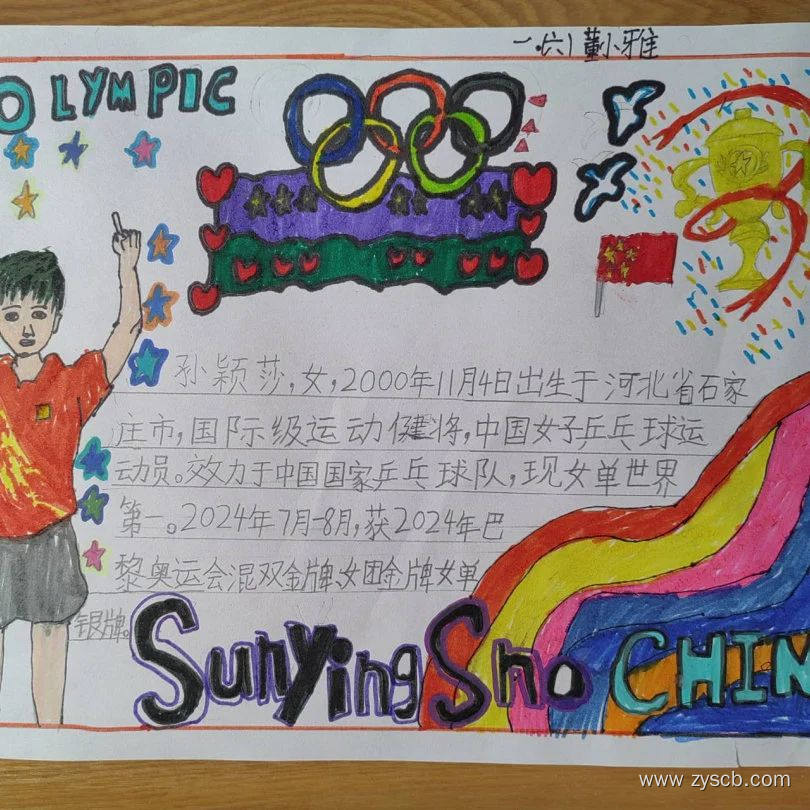 一.(六)董小雅
OLYMPIC
孙颖莎,女,2000年11月4日出生于河北省石家
庄市,国际级运动健将,中国女子乒乓球运
动员。效力于中国国家乒乓球队,现女单世界
第一。2024年7月-8月,获2024年巴
黎奥运会混双金牌、女团金牌女单
银牌。
SunyingSho
CHIN
www.zyscb.com